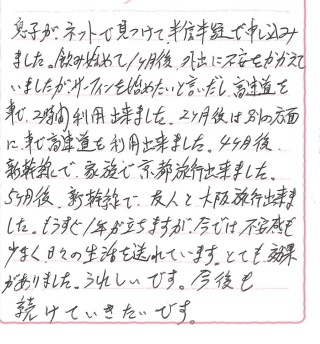 息子がネットで見つけて、半信半疑で申し込み
ました。飲み始めて1ヶ月後、外出に不安をかかえて
いましたがサーフィンを始めたいと言いだし高速道を
車で、2時間利用出来ました。2ヶ月後は別の方面
に車で高速道を利用出来ました。4ヶ月後
新幹線で、家族で京都旅行出来ました。
5ヶ月後、新幹線で、友人と大阪旅行出来ま
した。もうすぐ1年が立ちますが、今では不安感も
少なく日々の生活を送れています。とても効果
がありました。うれしいです。今後も
続けていきたいです。